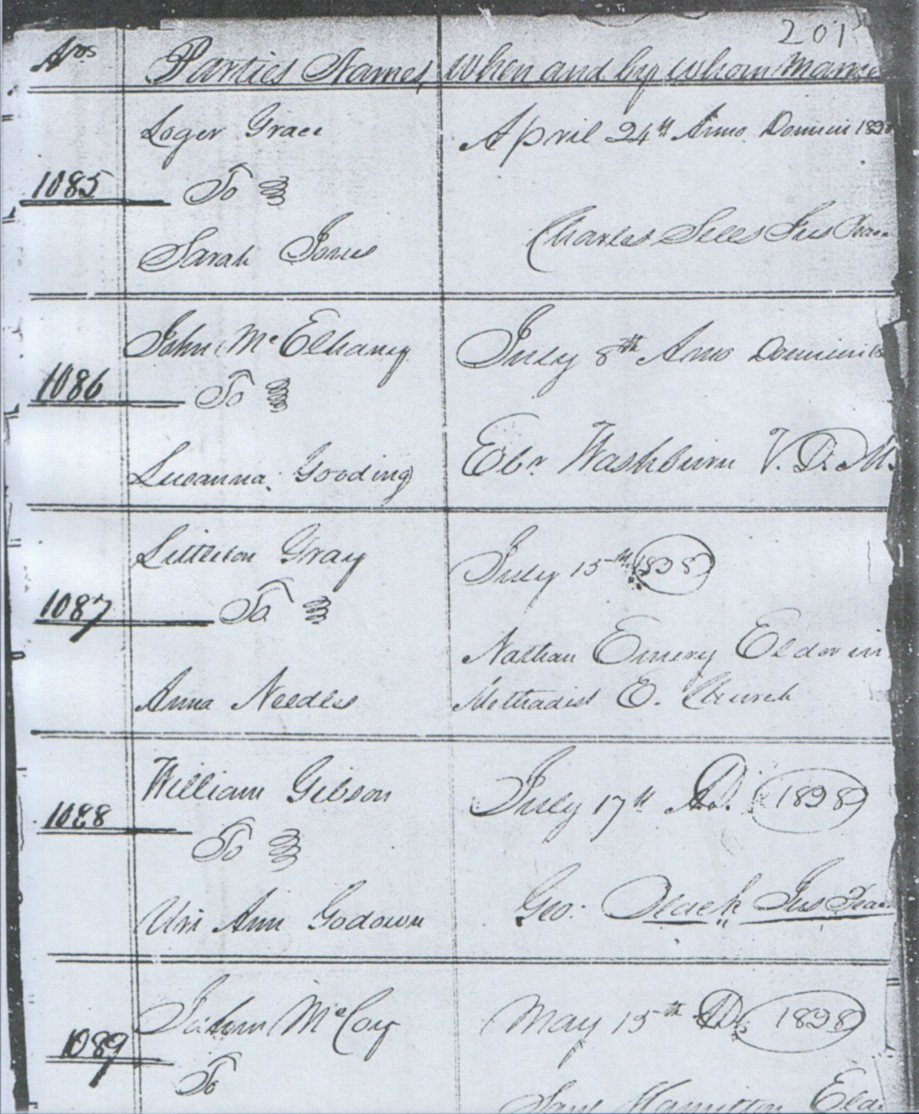 201
Nos Parties Names, When and by whom
Loger Grace April 24th Anno Domini
1085 To
Sarah Charles Jus
John McElhany July 8th Anno Domini
1086 To
Susanna Gooding Ebr Washburn V. D. M.
Littleton Gray July 15th 1838
1087 To
Nathan Emery Elder in
Anna Needles Methodist E. Church
William Gibson July 17th AD. 1838
1088 To
Uri Ann Godown Geo. Jus
McCoy May 15th AD. 1838
1089
To
Hamilton